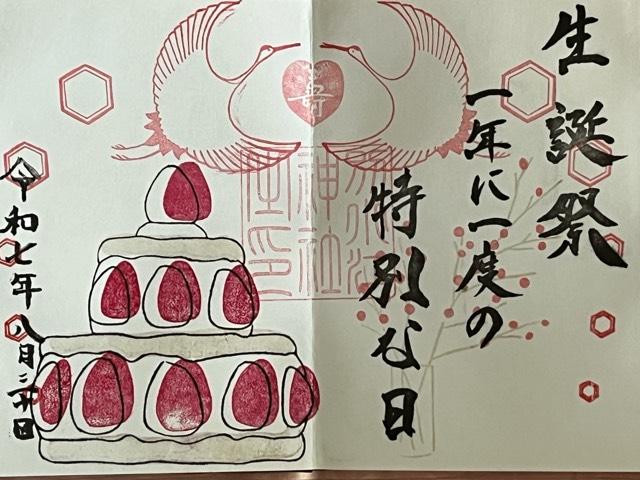 生誕祭
一年に一度の
特別な日
寿
令和七年八月二十日